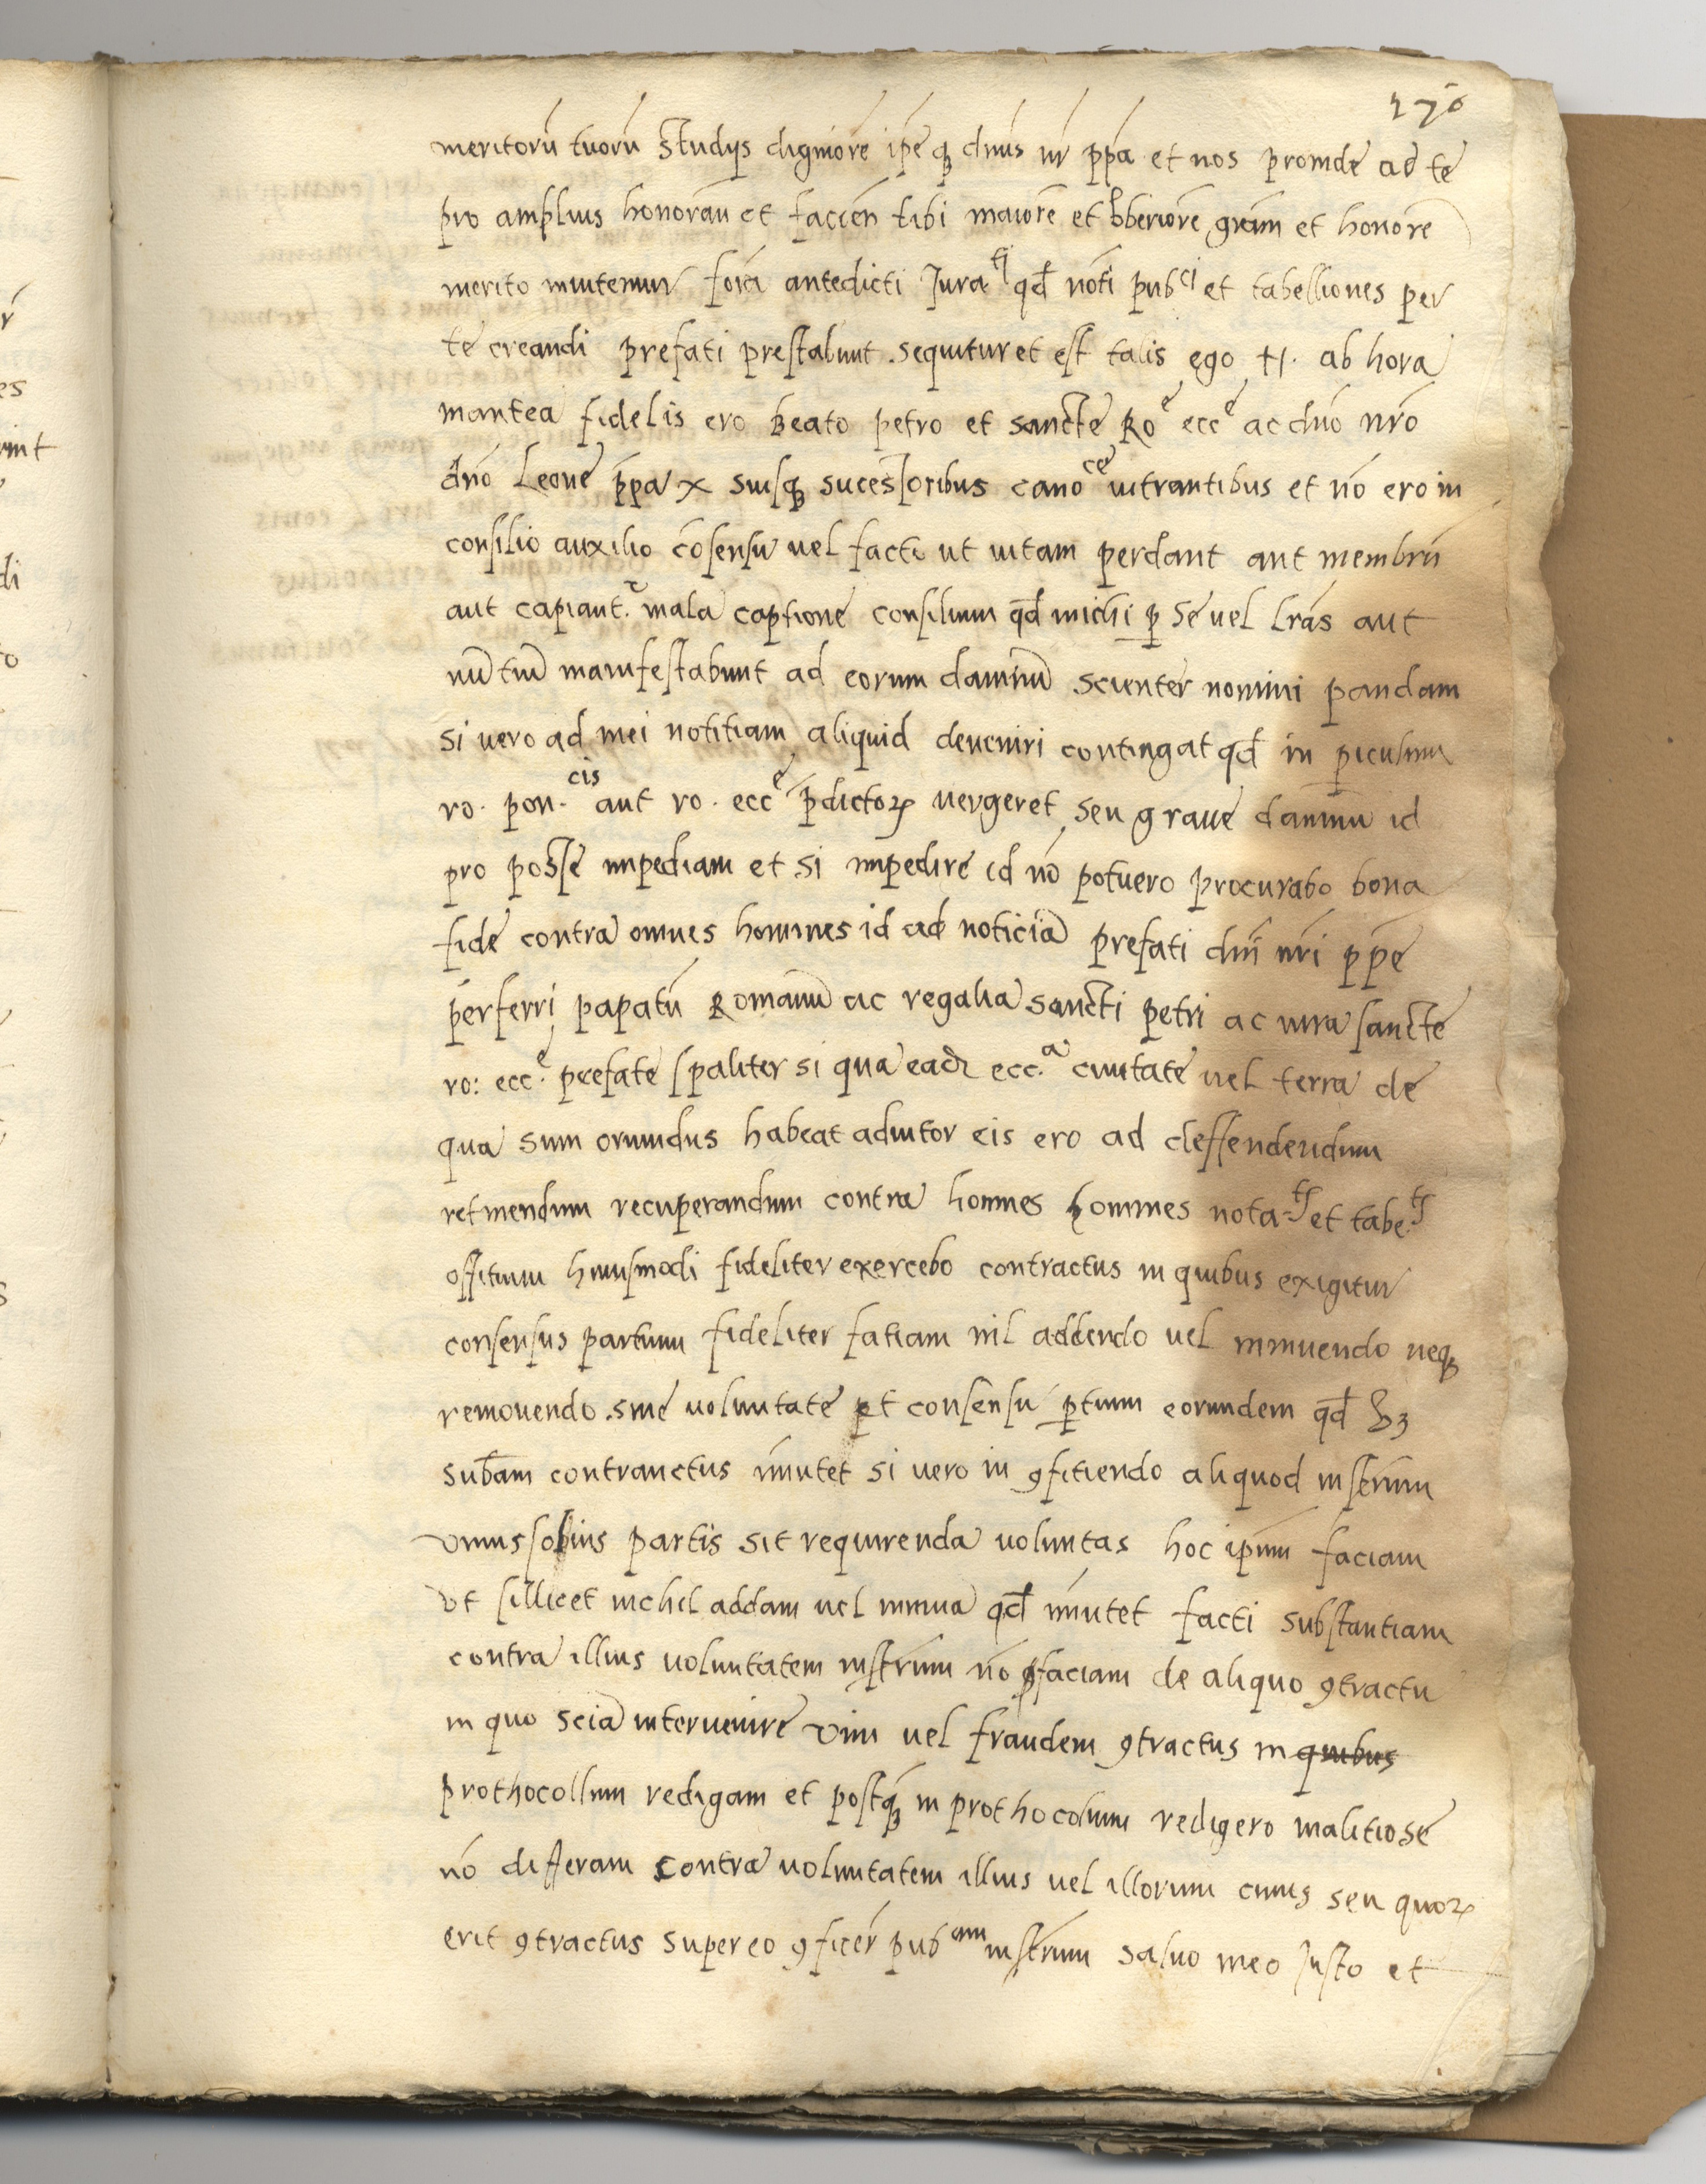 276
meritorũ tuorũ studijs digniore ip̃e q₃ dñus nr̃ pp̃a et nos proinde ad te
pro amplius honoran̄ et facien̄ tibi maiore et vberiore gr̃am et honore
merito inuitemur forā antedicti Jura^ti qđ noti pub^ci et tabelliones per
te creandi prefati prestabunt. sequitur et est talis ego H. ab hora
inantea fidelis ero beato petro et sancte Ro^e ecc^e ac dño nr̃o
dño Leone pp̃a x suisq₃ sucessoribus cano^ce intrantibus et nõ ero in
consilio auxilio cõsensu uel facto ut uitam perdant aut membrũ
aut capiant.^r mala captione consilium qđ michi ꝑ se uel lr̃as aut
nũtiũ manifestabunt ad eorum damnũ scienter nemini pandam
si vero ad mei notitiam aliquid deveniri contingat qđ in ꝑiculum
ro. pon.^cis aut ro. ecc^e p̃dictoꝝ vergeret seu grave damnũ id
pro posse impediam et si impedire id nõ potuero procurabo bona
fide contra omnes homines id ad noticiã prefati dñi nr̃i pp̃e
perferri papatũ Romanũ ac regalia sancti petri ac iura sancte
ro: ecc.^e prefate spaliter si qua eadẽ ecc.^a ciuitate uel terra de
qua sum oriundus habeat adiutor eis ero ad deffendendum
retinendum recuperandum contra homnes homines nota^ts et tabe^ts
offitium huiusmodi fideliter exercebo contractus in quibus exigitur
consensus partium fideliter fatiam nil addendo uel minuendo neq₃
removendo. sine uoluntate et consensu ꝑtium eorundem qđ
subam contranctus ĩmutet si vero in ꝯfitiendo aliquod instrũm
vnius solius partis sit requirenda uoluntas hoc ip̃um faciam
vt sillicet nichil addam uel minua qđ ĩmutet facti substantiam
contra illius uoluntatem instrũm nõ ꝯfaciam de aliquo ꝯtractu
in quo sciã intervenire vim uel fraudem ꝯtractus in quibus
prothocollum redigam et postq₃ in prothocolum redigero malitiose
nõ differam contra uoluntatem illius uel illorum cuius seu quoꝝ
erit ꝯtractus super eo ꝯficer̃ pub^am instrũm salvo meo Justo et